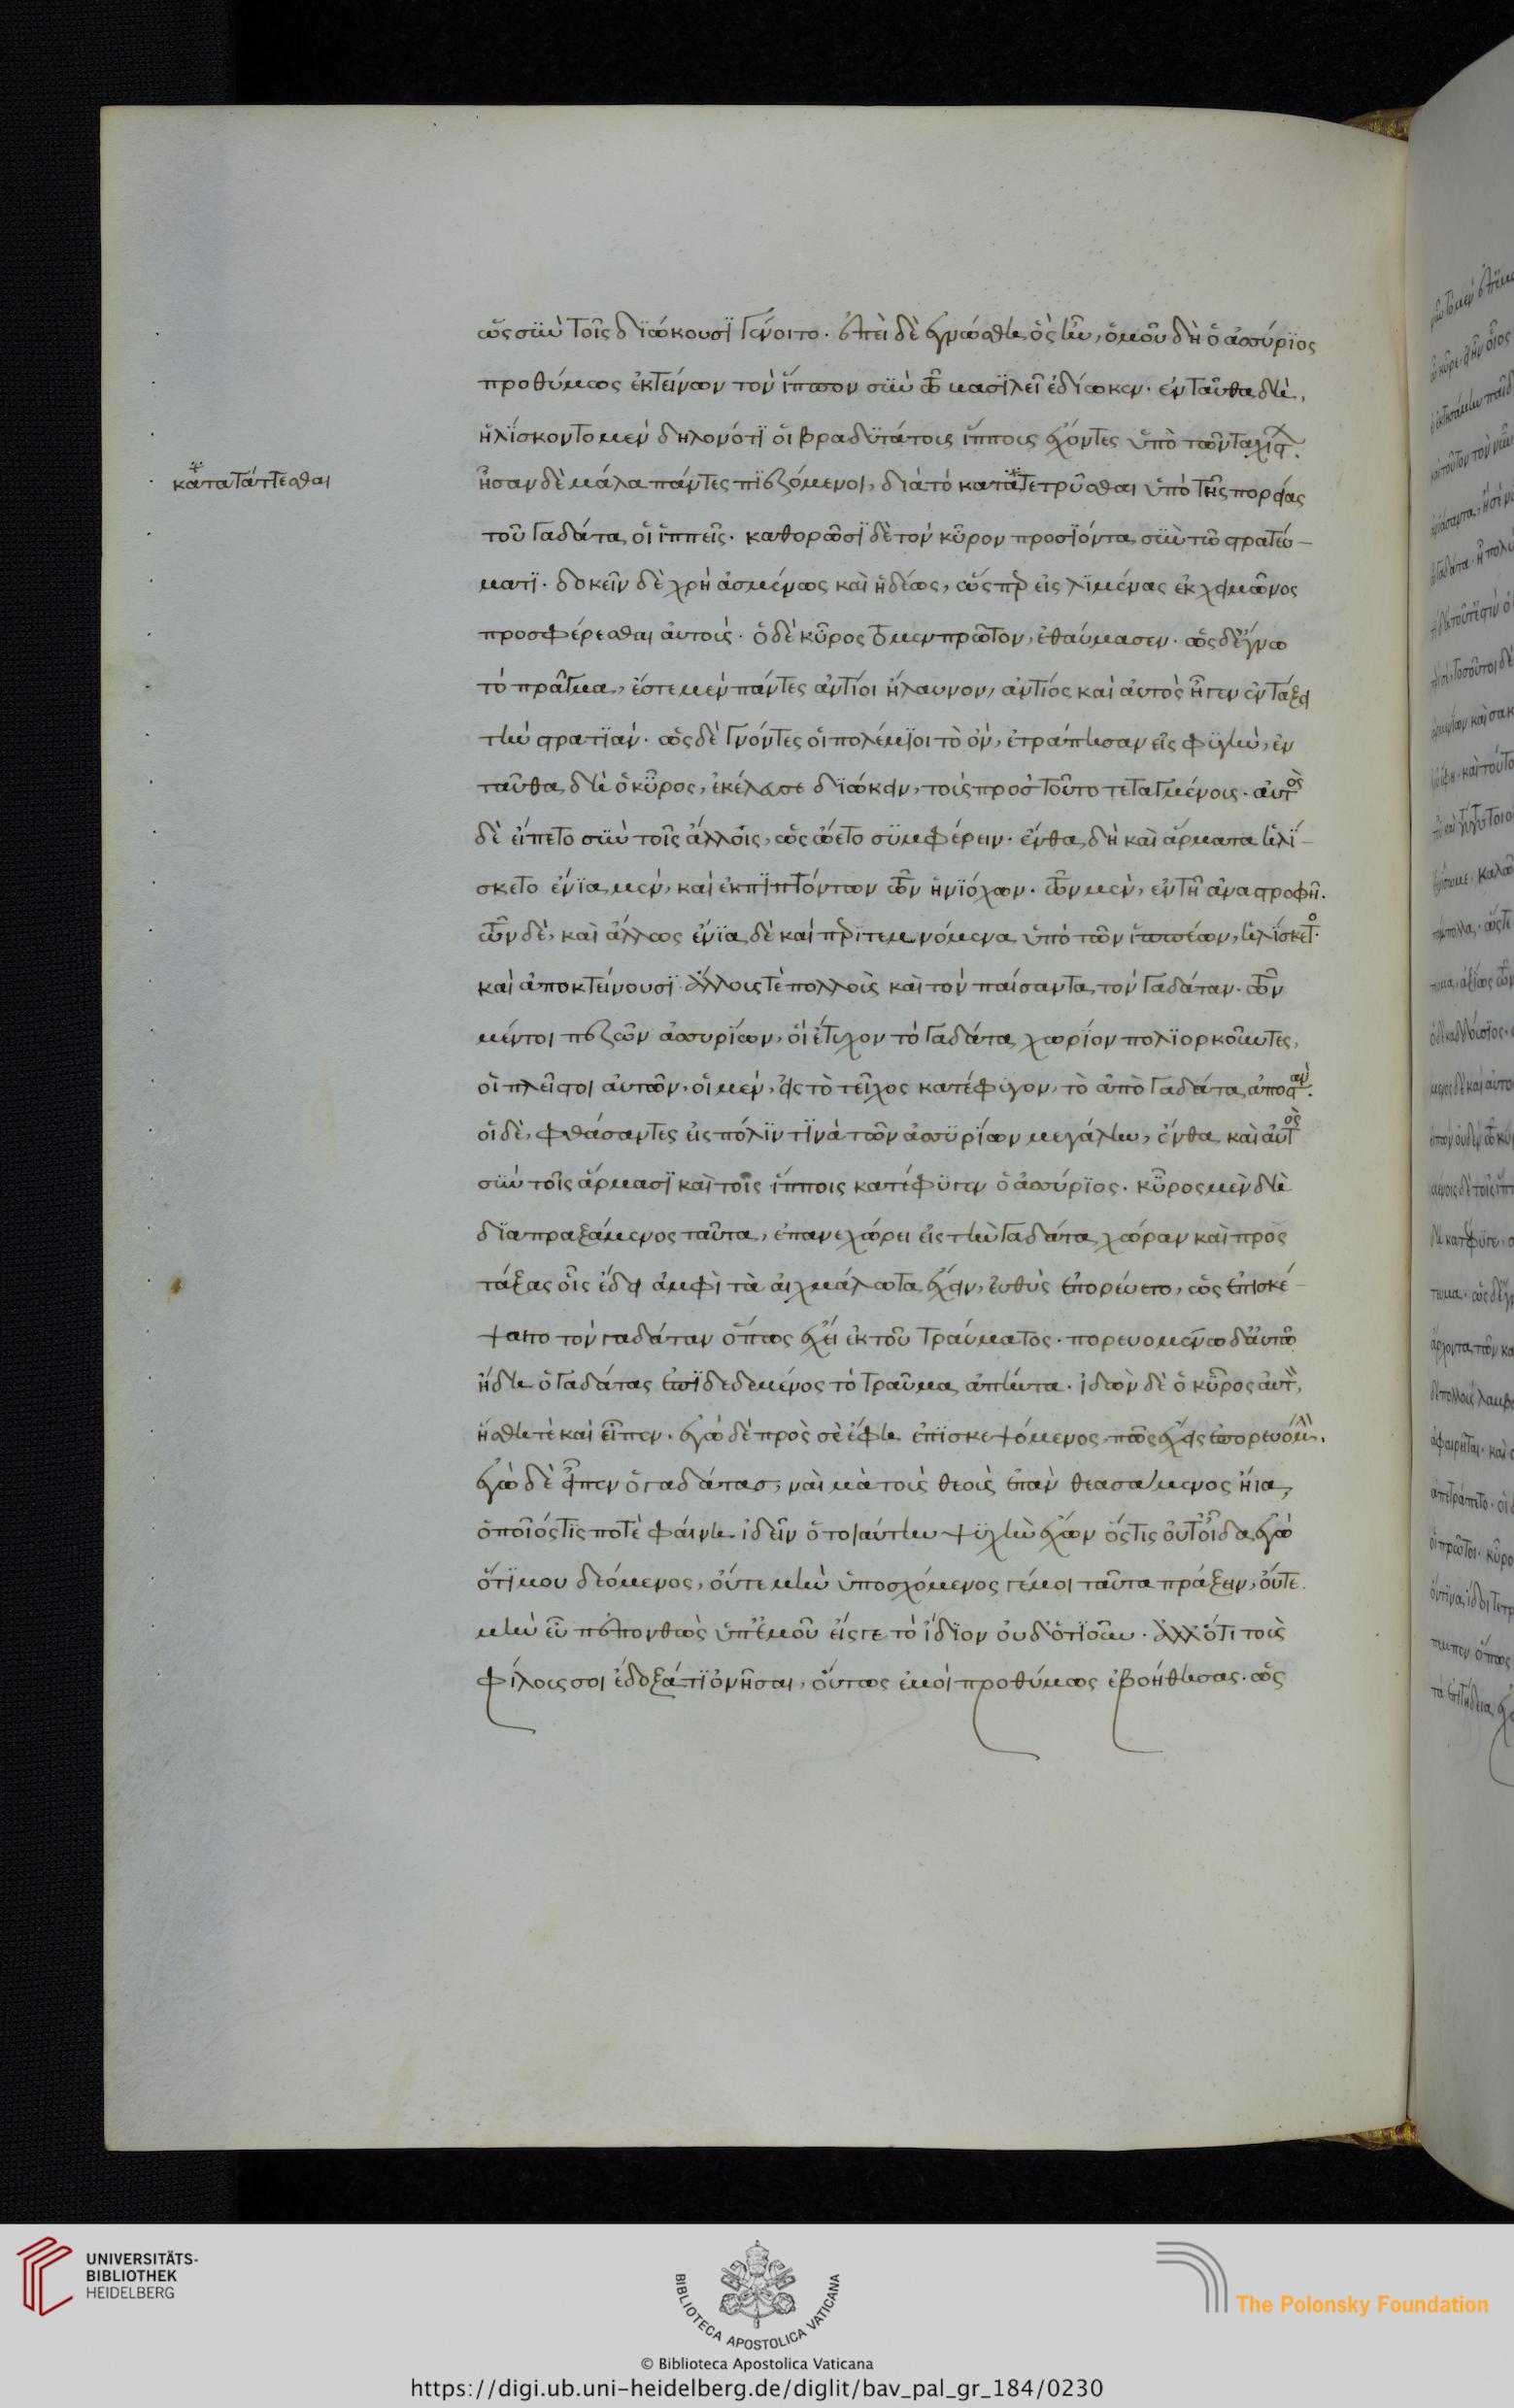 ὡς σὺν τοῖς διώκουσι γένοιτο. ἐπεὶ δὲ ἐγνώσθη ὃς ἦν, ὁμοῦ δὴ ὁ ἀσσύριος
προθύμως ἐκτείνων τὸν ἵππον σὺν τῷ βασιλεῖ ἐδίωκεν. ἐνταῦθα δὴ,
ἡλίσκοντο μὲν δηλονότι οἱ βραδυτάτοις ἵπποις ἔχοντες ὑπὸ τῶν ταχίστ.
κατατάττεσθαι
ἦσαν δὲ μάλα πάντες πιεζόμενοι, διὰ τὸ κατατετρῦσθαι ὑπὸ τῆς πορείας
τοῦ Γαδάτα οἱ ἱππεῖς. καθορῶσι δὲ τὸν κῦρον προσϊόντα σὺν τῷ στρατεύ-
ματι. δοκεῖν δὲ χρὴ ἀσμένως καὶ ἡδέως, ὥσπερ εἰς λιμένας ἐκ χειμῶνος
προσφέρεσθαι αὐτοὺς. ὁ δὲ κῦρος τὸ μεν πρῶτον, ἐθαύμασεν. ὡς δ' ἔγνω
τὸ πρᾶγμα, ἔστε μὲν πάντες ἀντίοι ἤλαυνον, ἀντίος καὶ αὐτὸς ἦγεν ἐν τάξει
τὴν στρατιάν. ὡς δὲ γνόντες οἱ πολέμιοι τὸ ὂν, ἐτράπησαν εἰς φυγὴν, ἐν
ταῦθα δὴ ὁ κῦρος, ἐκέλευσε διώκειν, τοὺς πρὸς τοῦτο τεταγμένους. αὐτὸς
δὲ εἵπετο σὺν τοῖς ἄλλοις, ὡς ᾤετο συμφέρειν. ἔνθα δὴ καὶ ἅρματα ἡλί-
σκετο ἔνια μὲν, καὶ ἐκπιπτόντων τῶν ἡνιόχων. τῶν μὲν, ἐν τῇ ἀναστροφῇ.
τῶν δὲ, καὶ ἄλλως ἔνια δὲ καὶ περιτεμνόμενα ὑπὸ τῶν ἱππέων, ἡλίσκετο.
καὶ ἀποκτείνουσι ἄλλους τὲ πολλοὺς καὶ τὸν παίσαντα τὸν Γαδάταν. τῶν
μέντοι πεζῶν ἀσσυρίων, οἳ ἔτυχον τὸ Γαδάτα χωρίον πολιορκοῦντες,
οἱ πλεῖστοι αὐτῶν, οἱ μὲν, εἰς τὸ τεῖχος κατέφυγον, τὸ ἀπὸ Γαδάτα ἀποστάν.
οἱ δὲ, φθάσαντες εἰς πόλιν τινὰ τῶν ἀσσυρίων μεγάλην, ἔνθα καὶ αὐτὸς
σὺν τοῖς ἅρμασι καὶ τοῖς ἵπποις κατέφυγεν ὁ ἀσσύριος. κῦρος μὲν δὴ
διαπραξάμενος ταῦτα, ἐπανεχώρει εἰς τὴν Γαδάτα χώραν καὶ προσ
τάξας οἷς ἔδει ἀμφὶ τὰ αἰχμάλωτα ἔχειν, εὐθὺς ἐπορεύετο, ὡς ἐπισκέ-
ψαιτο τὸν γαδάταν ὅπως ἔχει ἐκ τοῦ τραύματος. πορευομένῳ δ' αὐτῷ
ἤδη ὁ Γαδάτας ἐπιδεδεμένος τὸ τραῦμα ἀπήντα. ἰδὼν δὲ ὁ κῦρος αὐτὸν,
ἥσθη τὲ καὶ εἶπεν. ἐγὼ δὲ πρὸς σὲ ἔφη ἐπισκεψόμενος πῶς ἔχεις ἐπορευόμην.
ἐγὼ δὲ εἶπεν ὁ γαδάτας, ναὶ μὰ τοὺς θεοὺς ἐπὰν θεασάμενος ᾔια,
ὁποῖός τις ποτὲ φαίνη ἰδεῖν ὁ τοιαύτην ψυχὴν ἔχων ὅστις οὔτ' οἶδα ἐγὼ
ὅτι μου δεόμενος, οὔτε μὴν ὑποσχόμενος γέ μοι ταῦτα πράξειν, οὔτε
μὴν εὖ πεπονθὼς ὑπ' ἐμοῦ εἴς γε τὸ ἴδιον οὐδ' ὁτιοῦν. ἀλλ' ὅτι τοὺς
φίλους σοι ἔδοξά τι ὀνῆσαι, οὕτως ἐμοὶ προθύμως ἐβοήθησας. ὡς
UNIVERSITÄTS-
BIBLIOTHEK
HEIDELBERG
BIBLIOTECA APOSTOLICA VATICANA
The Polonsky Foundation
© Biblioteca Apostolica Vaticana
https://digi.ub.uni-heidelberg.de/diglit/bav_pal_gr_184/0230